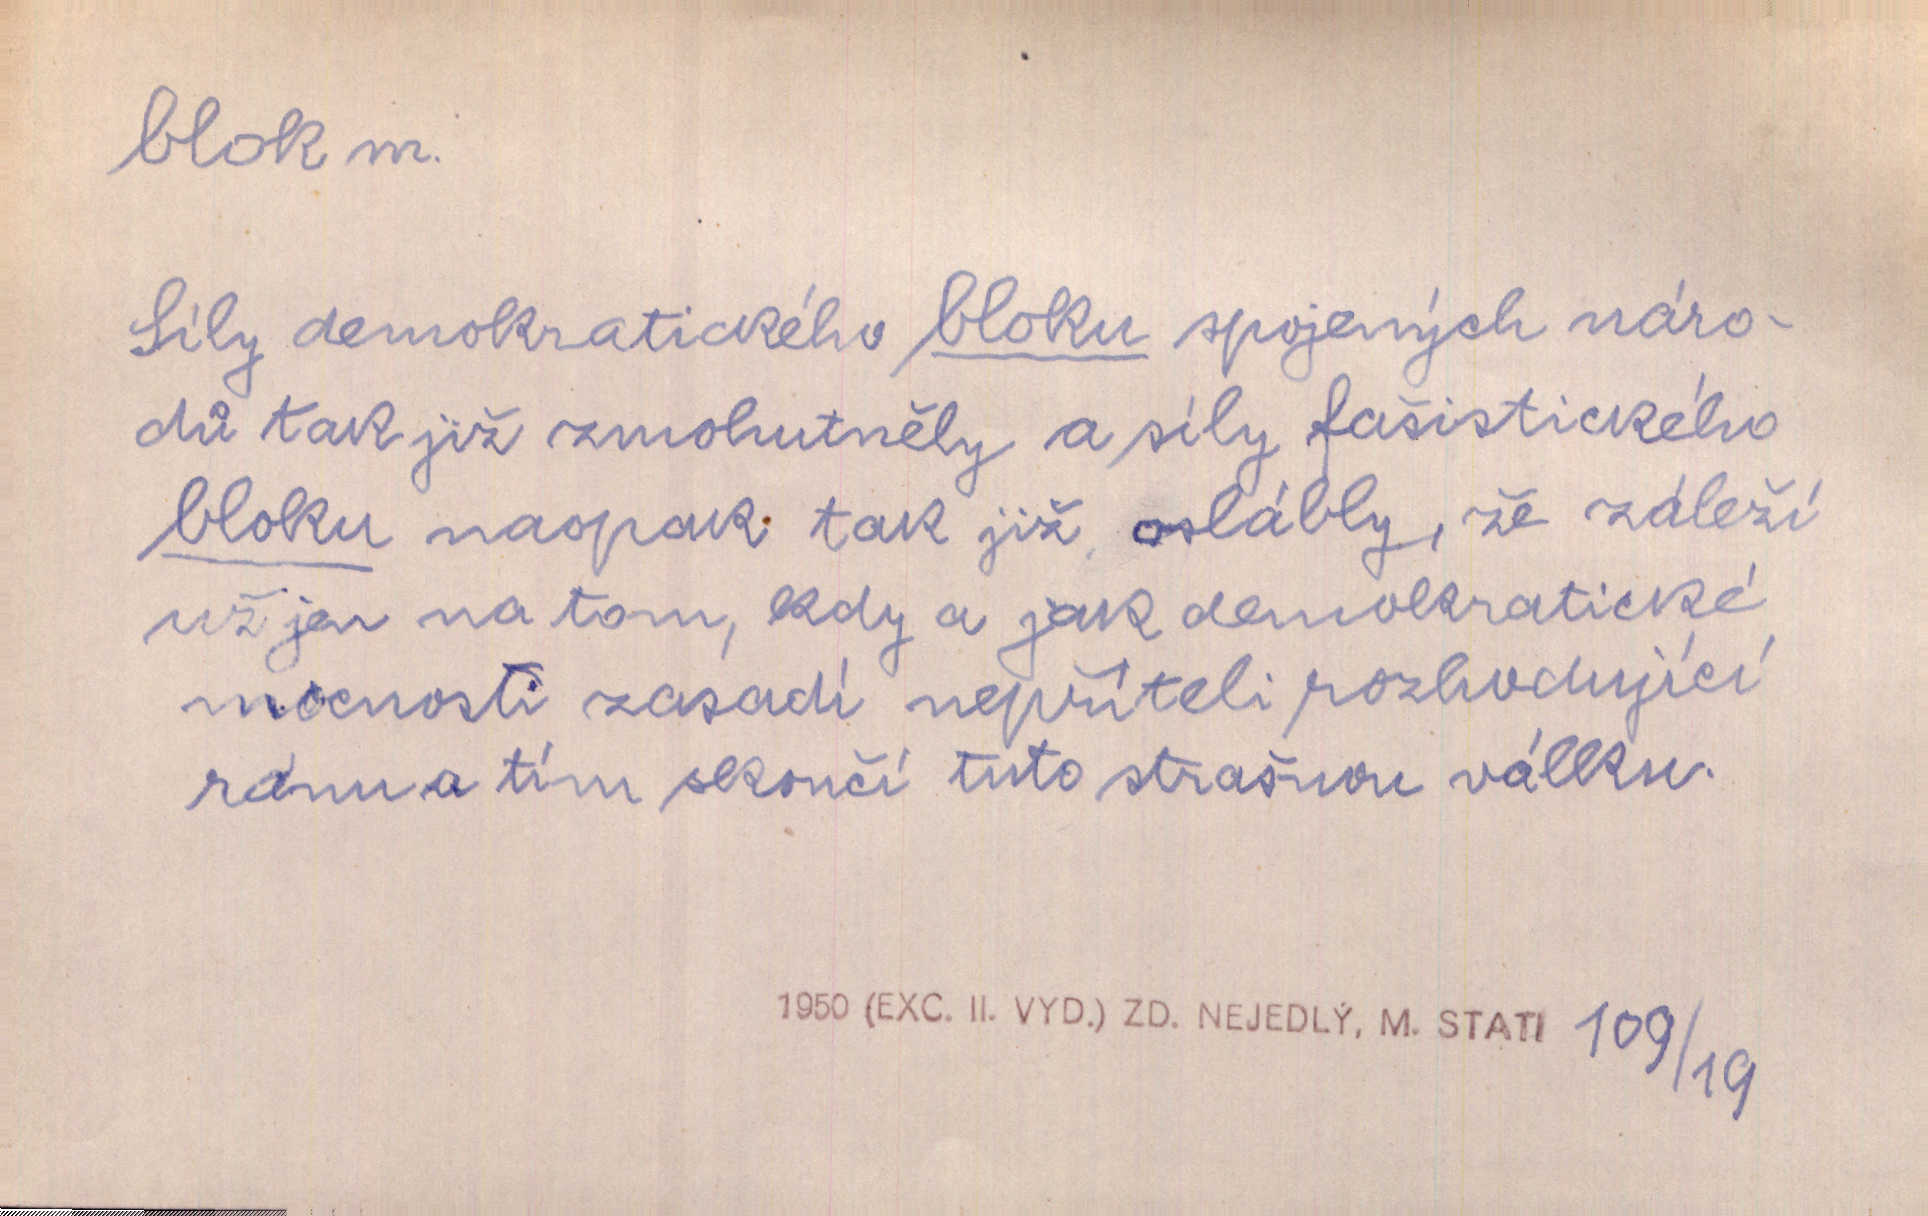 blok m.
Síly demokratického bloku spojených náro-
dů tak již zmohutněly a síly fašistického
bloku naopak tak již oslábly, že záleží
už jen na tom, kdy a jak demokratické
mocnosti zasadí nepříteli rozhodující
ránu a tím skončí tuto strašnou válku.
1950 (EXC. II. VYD.) ZD. NEJEDLÝ, M. STATI 109/19